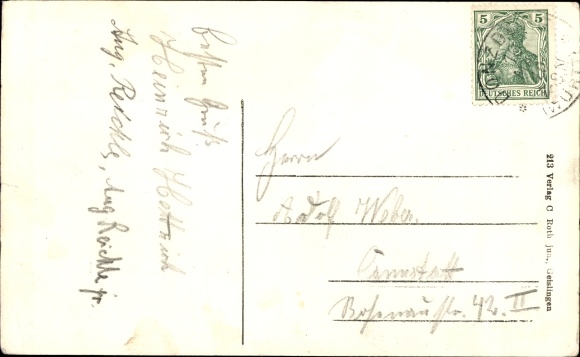 Besten Gruß
Heinrich Hettich
Aug. Reichle, Aug Reichle jr.
5 5
DEUTSCHES REICH
Herrn
Adolf Weber.
Cannstatt
Rosenaustr. 42. II
213 Verlag C. Roth jun., Geislingen